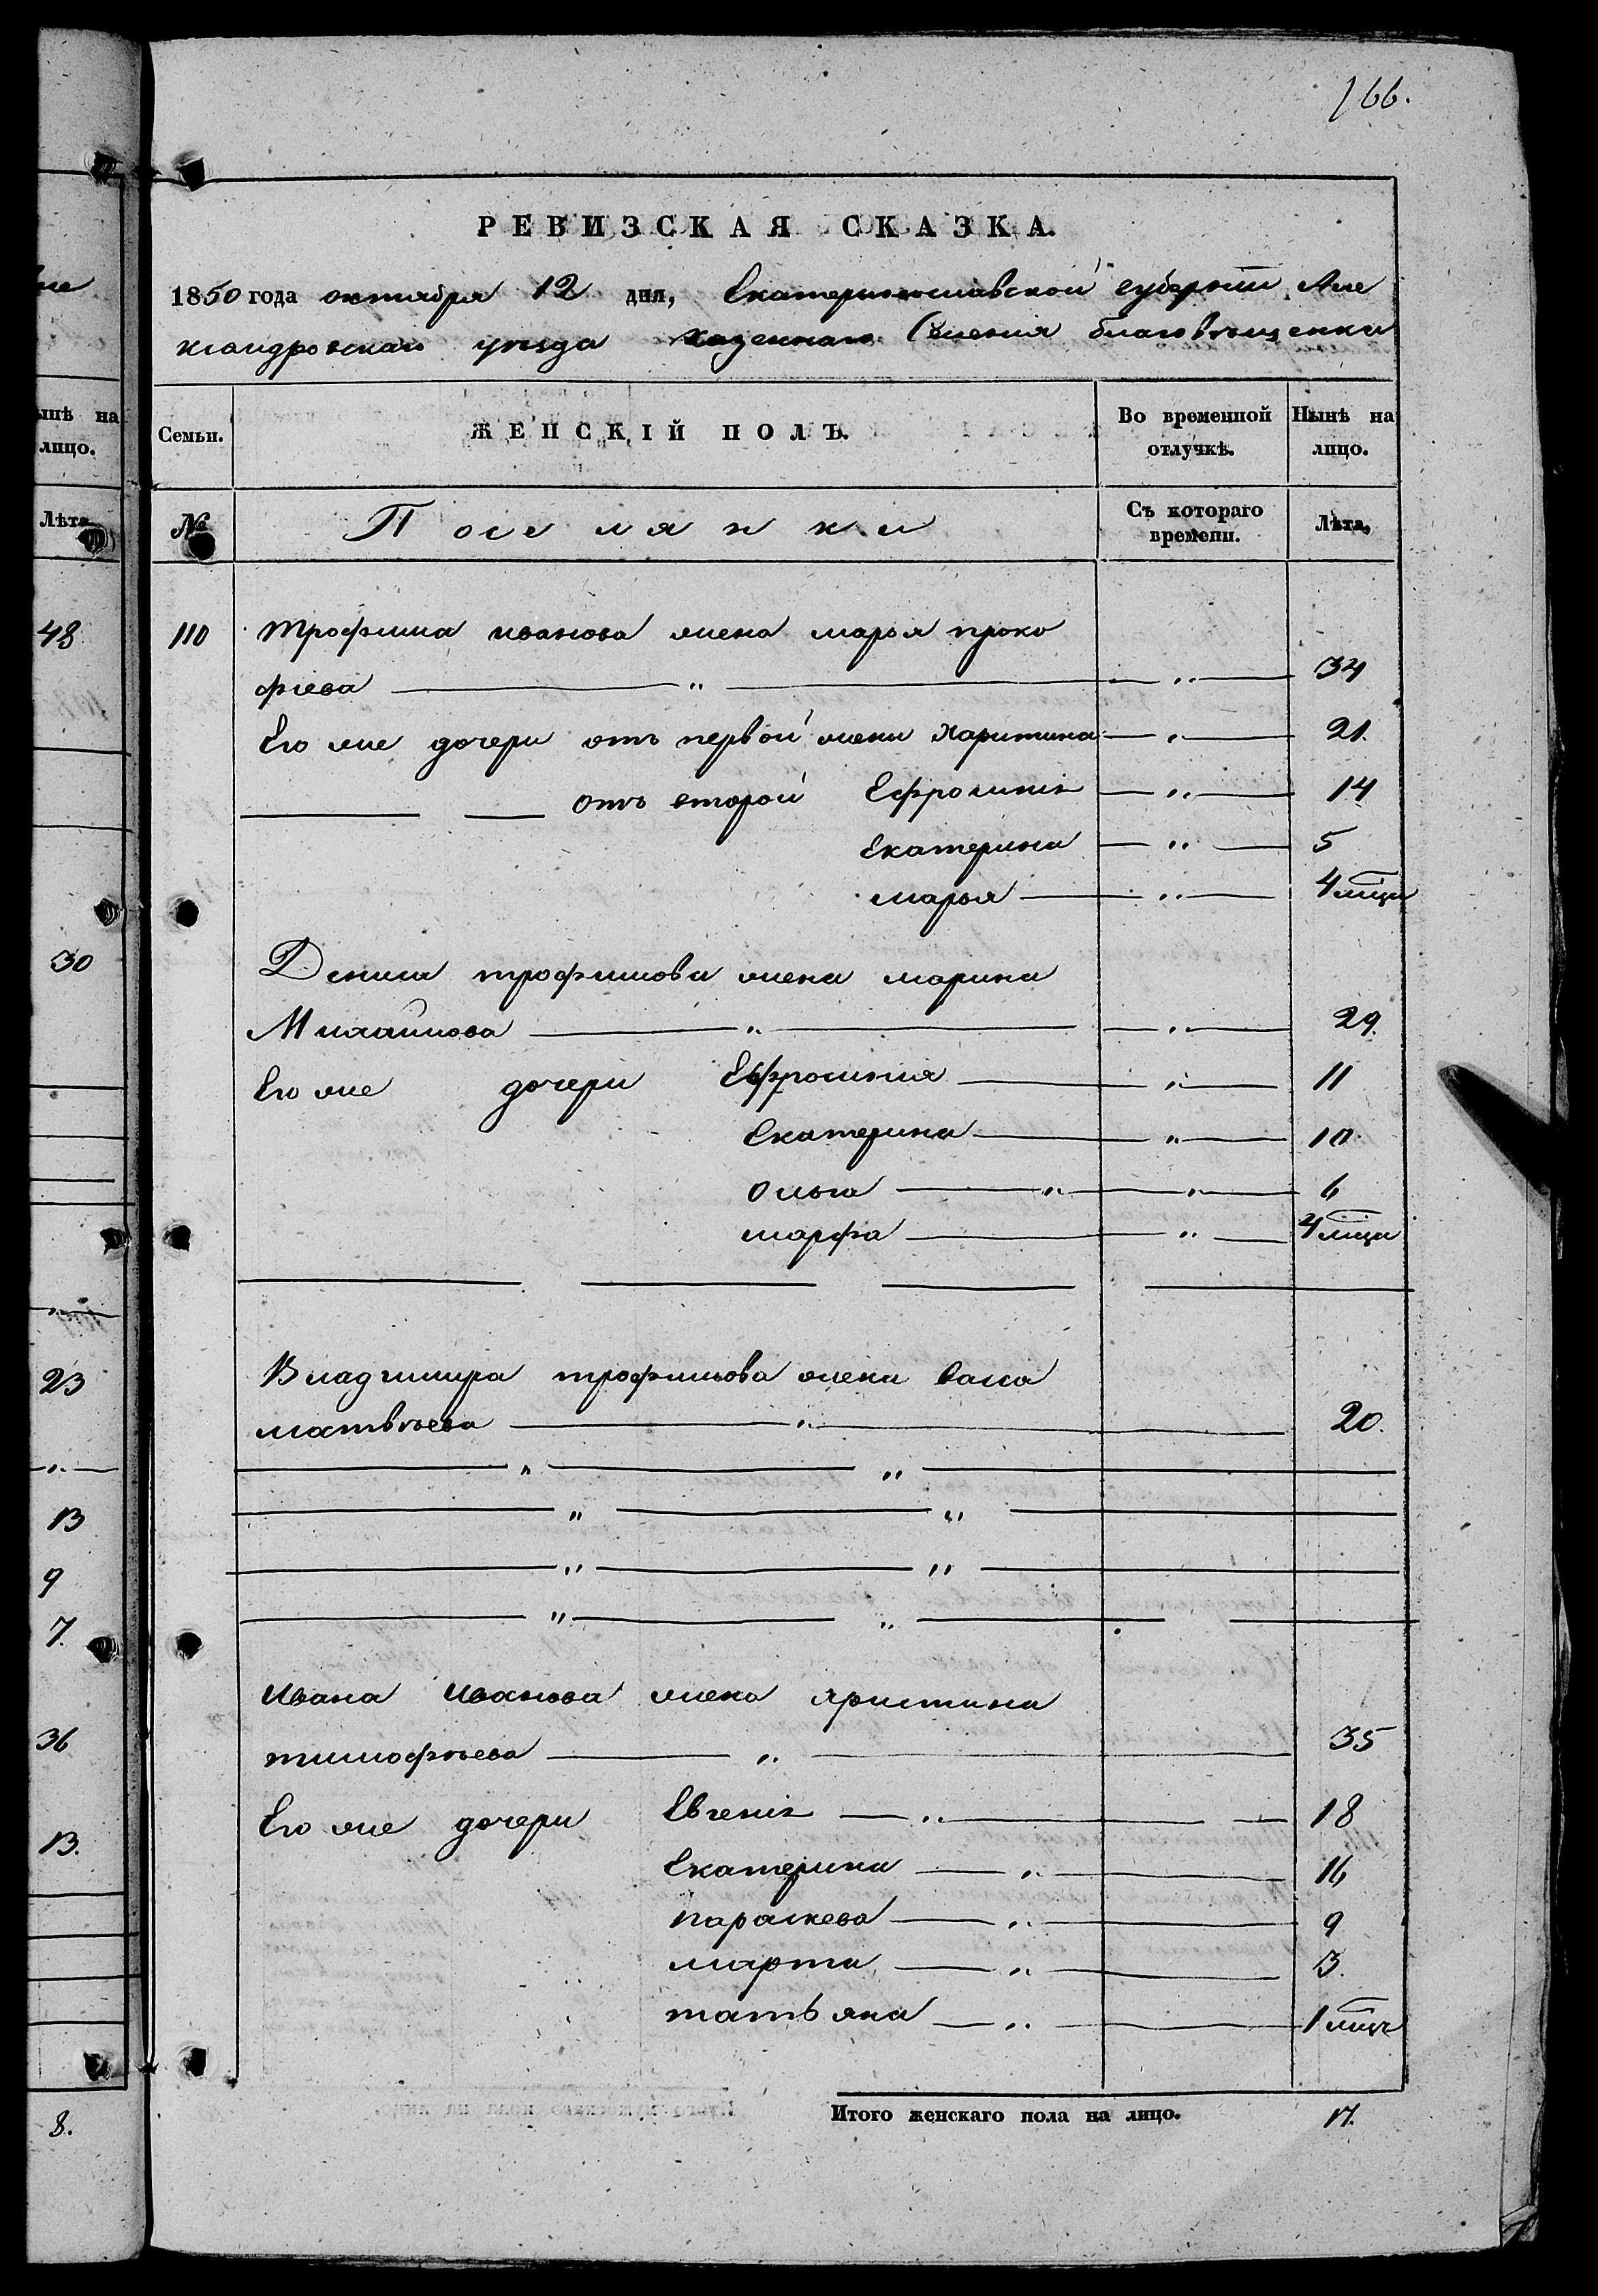 166.
РЕВИЗСКАЯ СКАЗКА.
1850 года октября 12 дня, Екатеринославской губернии Але
ксандровскаго уезда казеннаго Селения благовѣщенки
Семьи.
ЖЕНСКІЙ ПОЛЪ.
Во временной отлучкѣ.
Нынѣ на лицо.
№
Поселянки
Съ котораго времени.
Лѣта,
110 трофима иванова жена марья проко
фіева — " — " — 34
Его же дочери отъ первой жены Харитина — " — 21.
— — отъ второй Ефросинія — " — 14
Екатерина — " — 5
марья — " — 4 мца
Дениса трофимова жена марина
Михайлова — " — " — 29.
Его же дочери Ефросиния — " — 11
Екатерина — " — 10
ольга — " — " — 6
марфа — " — 4 мца
Владимира трофимова жена васса
матвѣева — " — 20.
— " — " —
— " — " —
— " — " —
— " — " —
ивана иванова жена христина
тимофѣева — " — 35
Его же дочери Евгенія — " — 18
Екатерина — " — 16
параскева — " — 9
марта — " — 3.
татьяна — " — 1 мцъ
Итого женскаго пола на лицо. 17.
ынѣ на
лицо.
Лѣта
48
30
"
23
"
13
9
7.
36
13.
8.